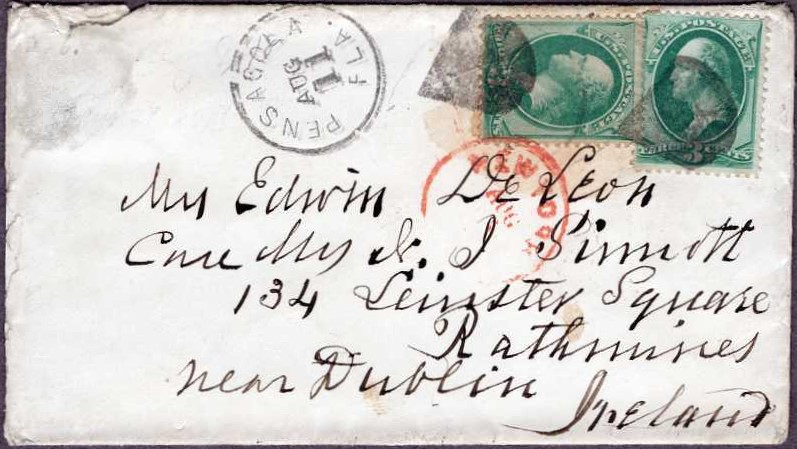 PENSACOLA FLA.
AUG
11
U.S. POSTAGE
U.S. POSTAGE
3 CENTS
NEW YORK
AUG
Mrs Edwin De Leon
Care Mrs N. J Sinnott
134 Leinster Square
Rathmines
near Dublin
Ireland